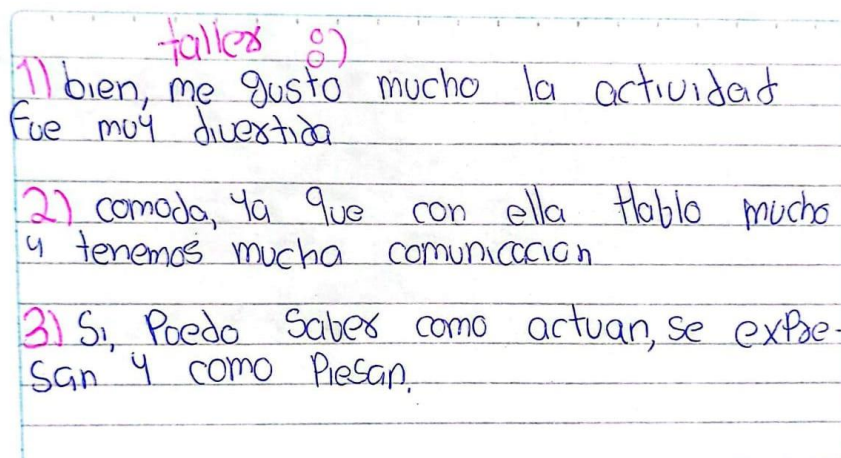 taller :)
1) bien, me gusto mucho la actividad
fue muy divertida
2) comoda, ya que con ella Hablo mucho
y tenemos mucha comunicacion
3) Si, Puedo saber como actuan, se expre-
san y como Piesan.